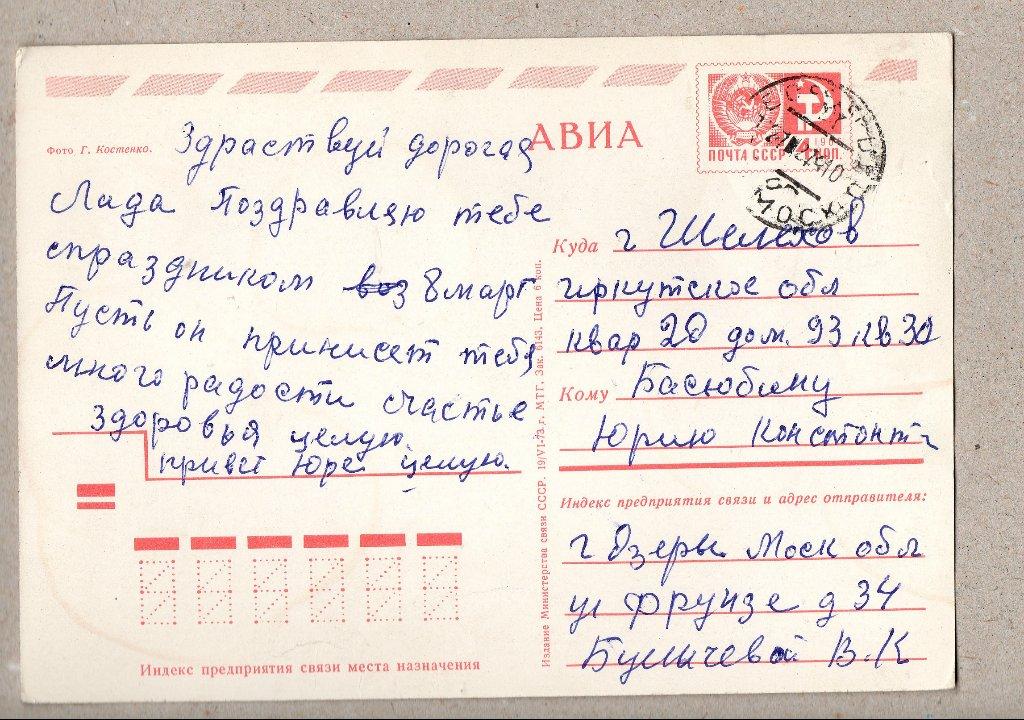 АВИА
ПОЧТА СССР
Фото Г. Костенко.
Здраствуй дорогая
Лада Поздравляю тебе
спраздником 8 март
Пусть он принисет тебя
много радости счастье
здоровья целую.
привет Юре целую.
Куда г Шелехов
иркутское обл
квар 20 дом. 93 кв 30
Кому Басюбину
Юрию Константи
Индекс предприятия связи и адрес отправителя:
г Озеры Моск обл
ул Фрунзе д 34
Буничевой В. К
Издание Министерства связи СССР. 19/VI-73 г. МТГ. Зак. 6143. Цена 6 коп.
Индекс предприятия связи места назначения